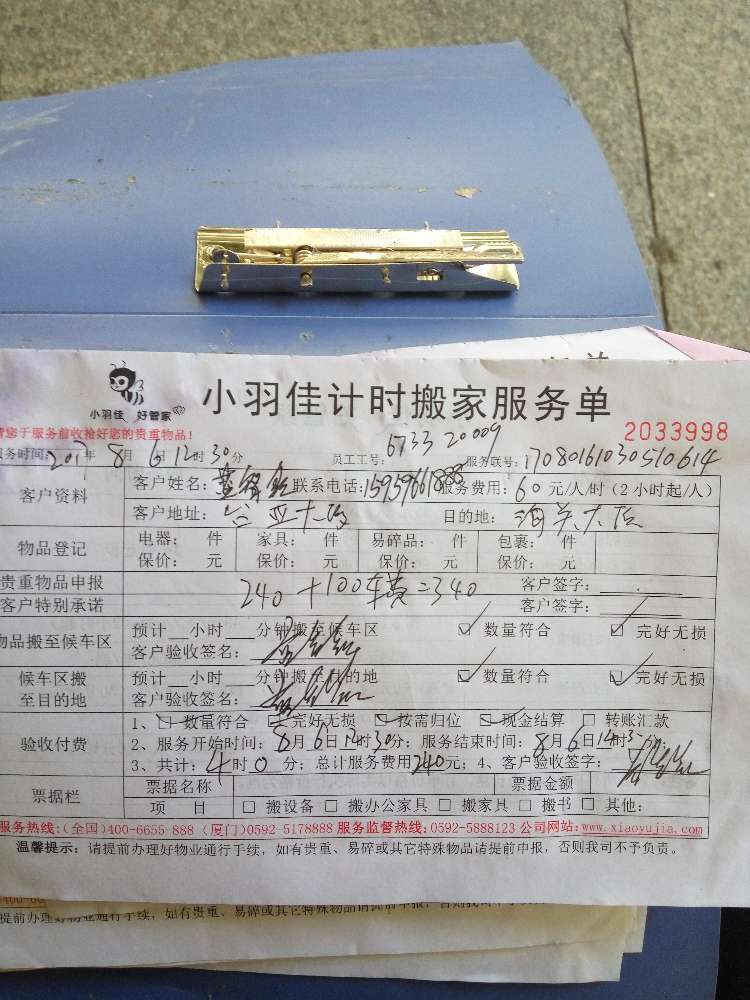 小羽佳 好管家
小羽佳计时搬家服务单
请您于服务前收拾好您的贵重物品！
2033998
服务时间：2017年8月6日12时30分 员工工号：6733 20009 服务联号：17080161030510614
客户资料
客户姓名： 联系电话：15959661888 服务费用：60元/人/时（2小时起/人）
客户地址： 目的地：海关大厦
物品登记
电器： 件 家具： 件 易碎品： 件 包裹： 件
保价： 元 保价： 元 保价： 元 保价： 元
贵重物品申报 客户签字：
240+100车费=340
客户特别承诺 客户签字：
物品搬至候车区
预计__小时___分钟搬至候车区 ☑ 数量符合 ☑ 完好无损
客户验收签名：
候车区搬至目的地
预计__小时___分钟搬至目的地 ☑ 数量符合 ☑ 完好无损
客户验收签名：
验收付费
1、☑ 数量符合 ☑ 完好无损 ☑ 按需归位 ☑ 现金结算 □ 转账汇款
2、服务开始时间：8月6日12时30分；服务结束时间：8月6日14时
3、共计：4时0分；总计服务费用240元；4、客户验收签字：
票据栏
票据名称 票据金额
项 目 □ 搬设备 □ 搬办公家具 □ 搬家具 □ 搬书 □ 其他：
服务热线：(全国)400-6655 888 (厦门)0592-5178888 服务监督热线：0592-5888123 公司网站：www.xiaoyujia.com
温馨提示：请提前办理好物业通行手续，如有贵重、易碎或其它特殊物品请提前申报，否则我司不予负责。
提前办理好物业通行手续，如有贵重、易碎或其它特殊物品请提前申报，